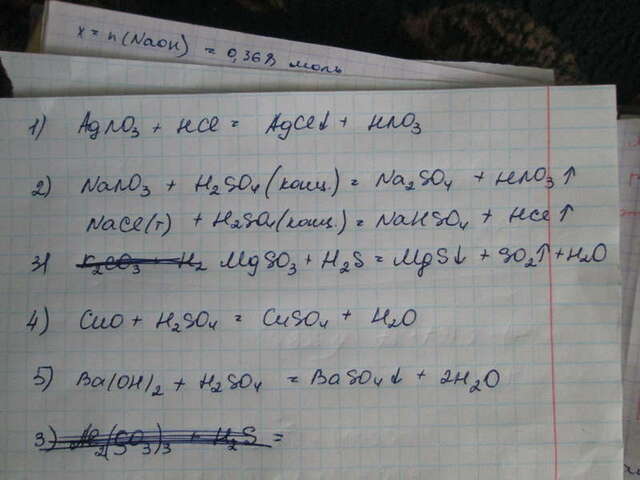 x = n(NaOH) = 0,368 моль
1) AgNO₃ + HCl = AgCl↓ + HNO₃
2) NaNO₃ + H₂SO₄ (конц.) = Na₂SO₄ + HNO₃↑
NaCl(т) + H₂SO₄(конц.) = NaHSO₄ + HCl↑
3) K₂CO₃ + H₂ MgSO₃ + H₂S = MgS↓ + SO₂↑ + H₂O
4) CuO + H₂SO₄ = CuSO₄ + H₂O
5) Ba(OH)₂ + H₂SO₄ = BaSO₄↓ + 2H₂O
3) Al₂(SO₃)₃ + H₂S =